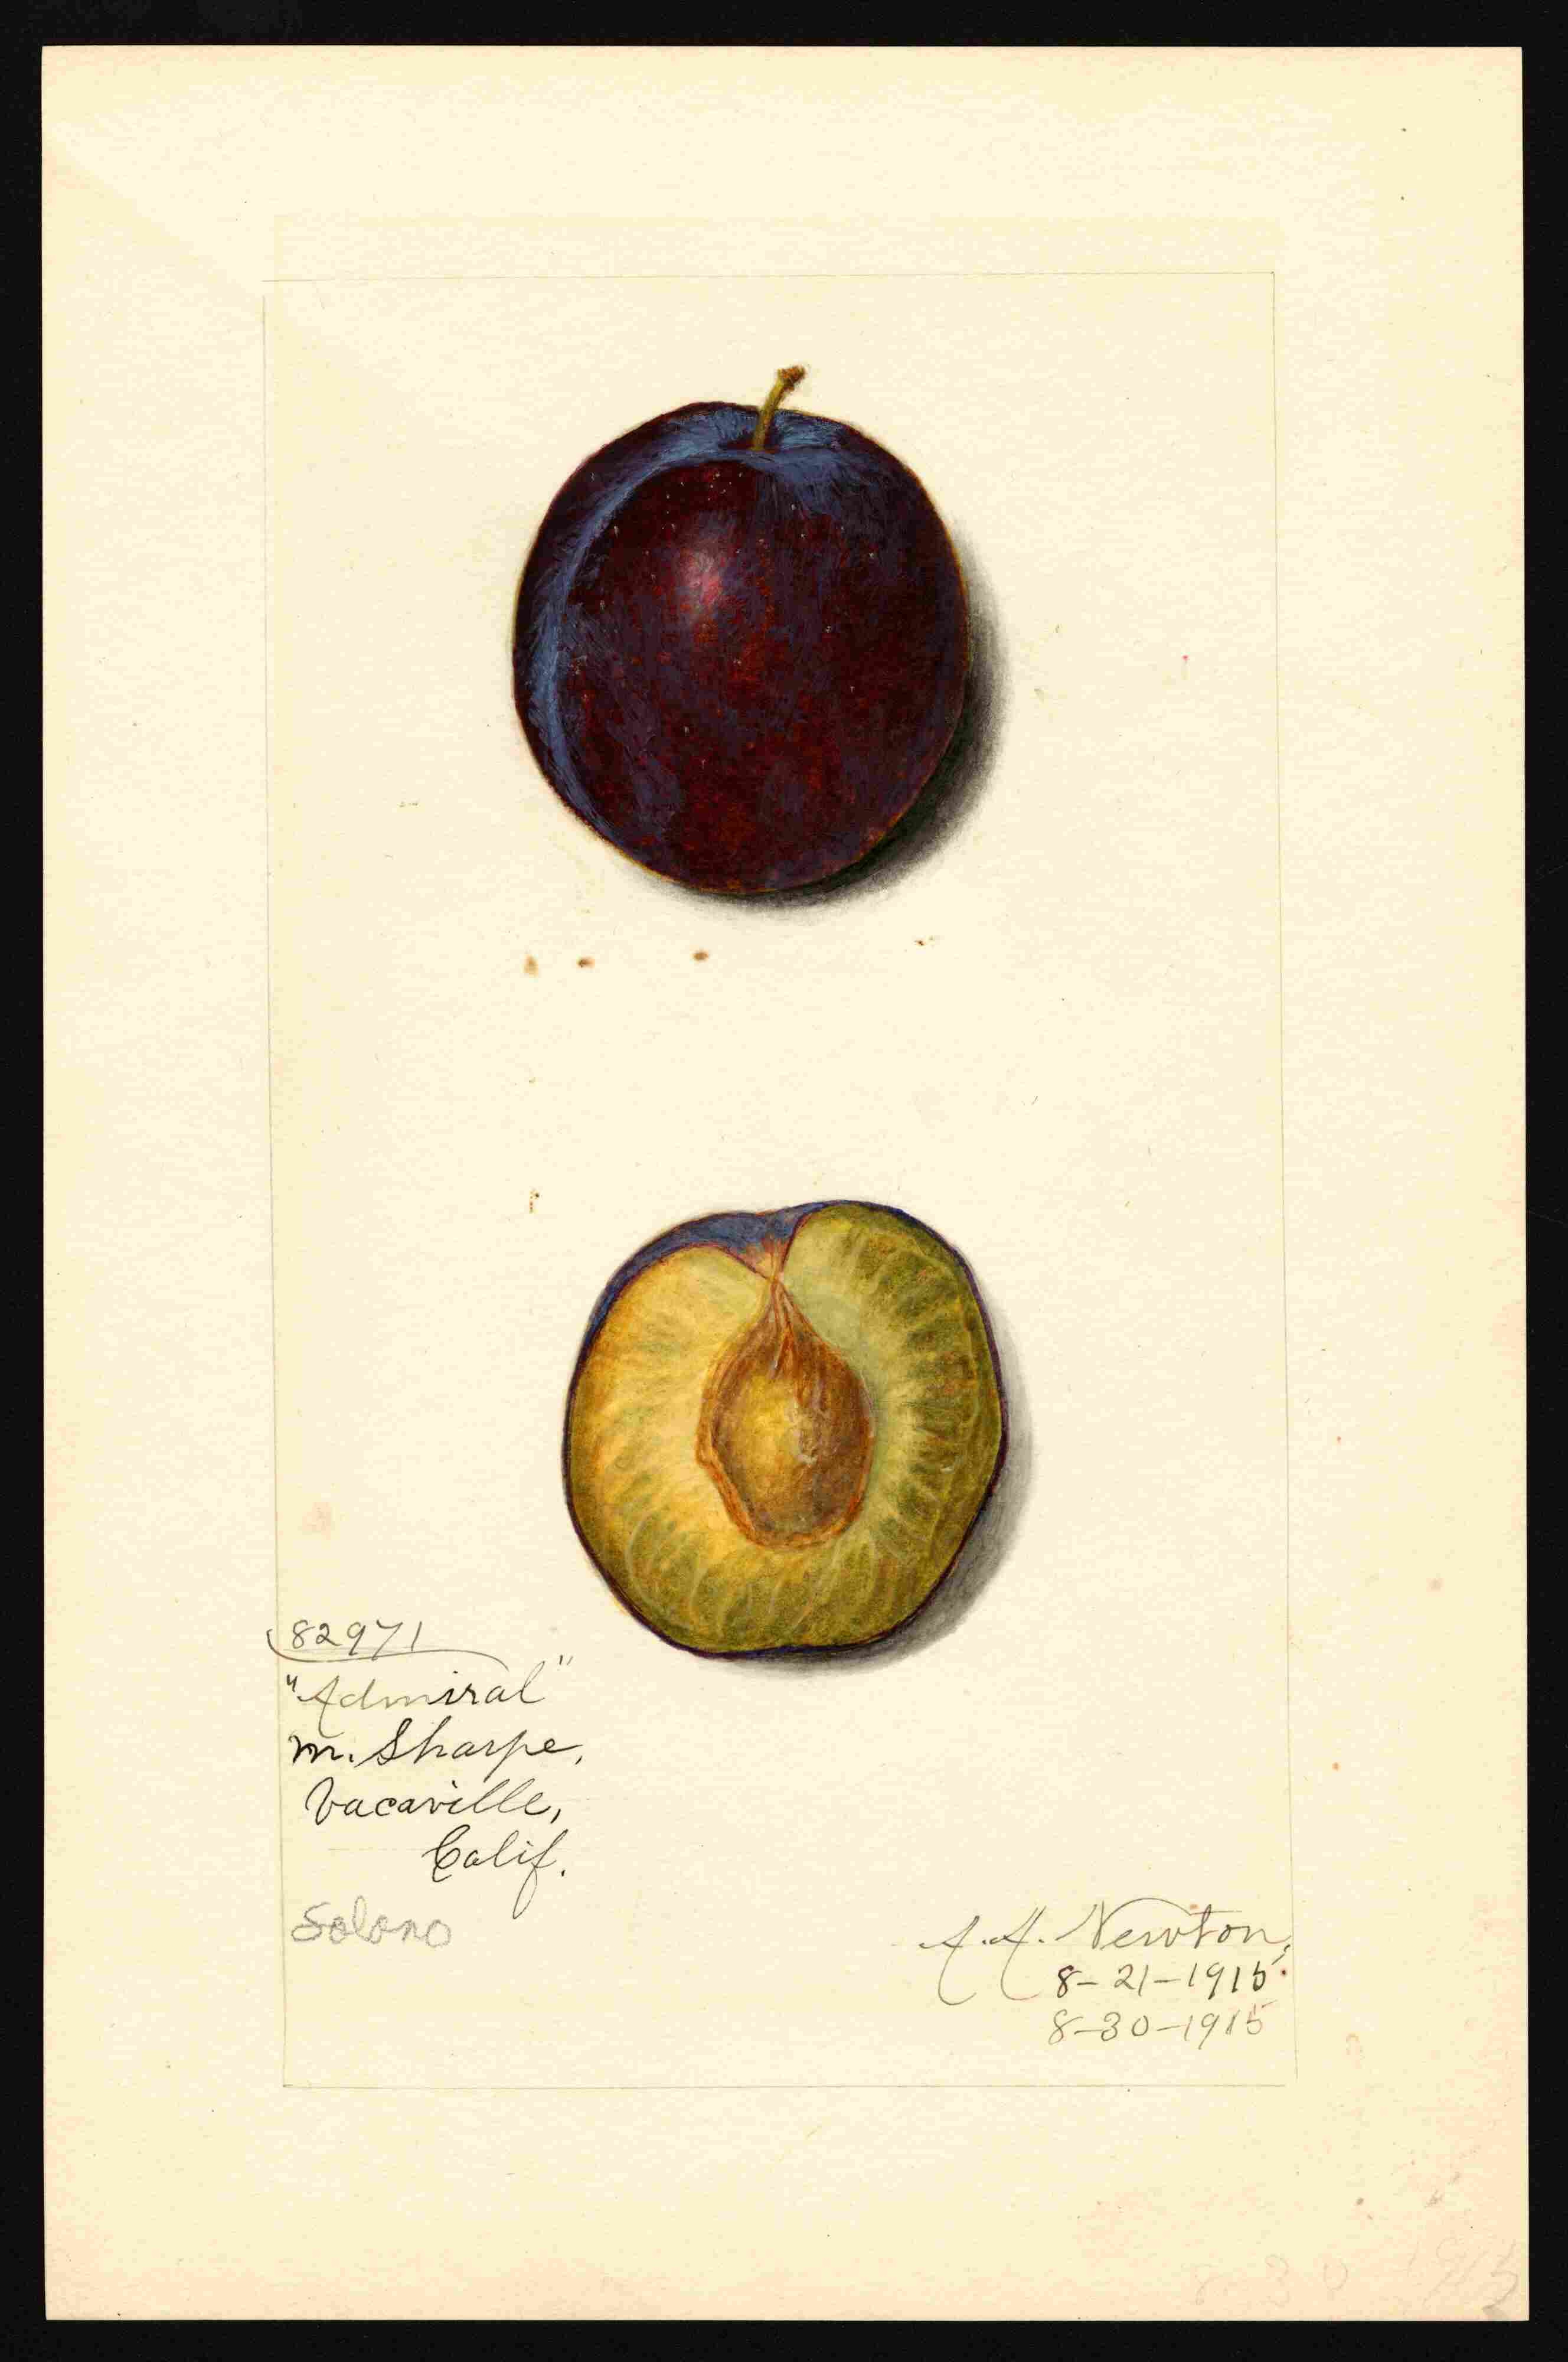 82971
"Admiral"
M. Sharpe,
Vacaville,
Calif.
Solano
A.A. Newton,
8-21-1915.
8-30-1915
8 30 1915